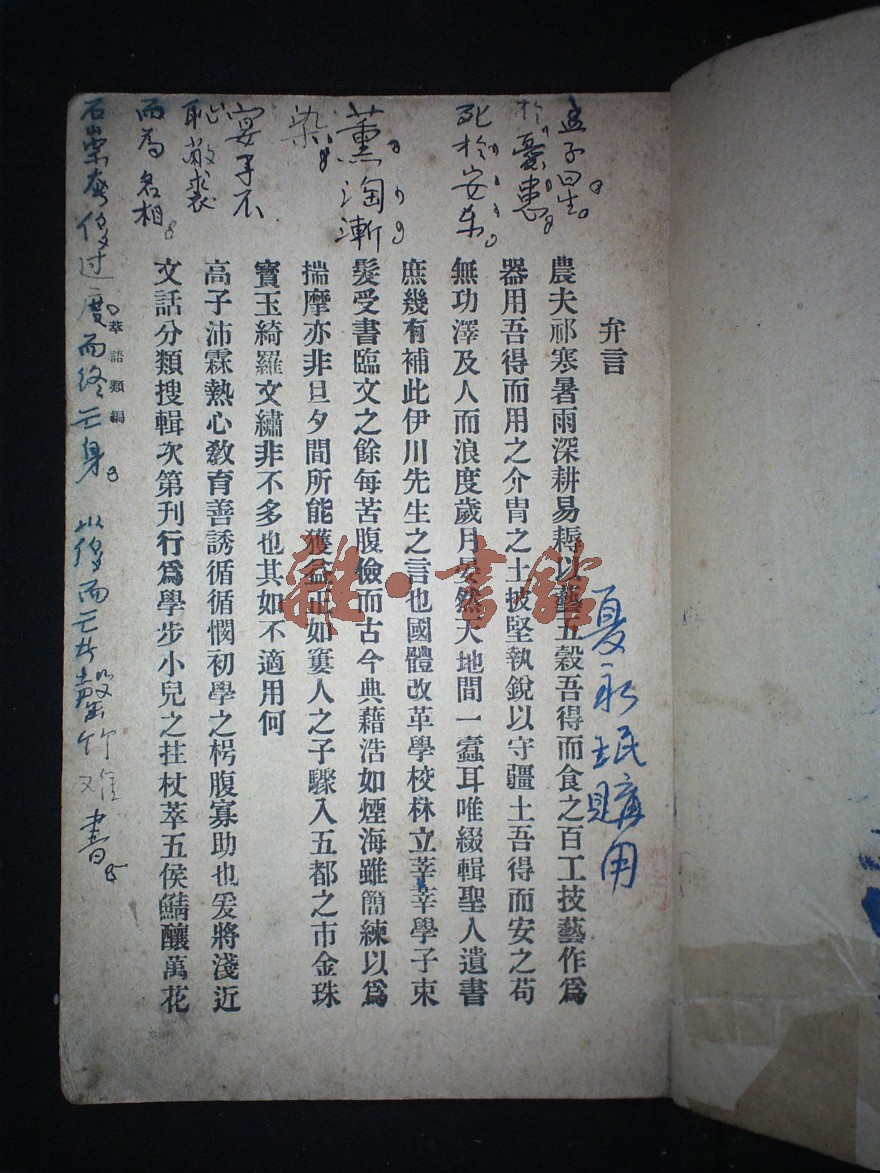 弁言
農夫祁寒暑雨深耕易耨以藝五穀吾得而食之百工技藝作爲
器用吾得而用之介冑之士披堅執銳以守疆土吾得而安之苟
無功澤及人而浪度歲月晏然天地間一蠧耳唯綴輯聖人遺書
庶幾有補此伊川先生之言也國體改革學校林立莘莘學子束
髮受書臨文之餘每苦腹儉而古今典藉浩如煙海雖簡練以爲
揣摩亦非旦夕間所能獲益正如窶人之子驟入五都之市金珠
寶玉綺羅文繡非不多也其如不適用何
高子沛霖熱心敎育善誘循循憫初學之枵腹寡助也爰將淺近
文話分類搜輯次第刊行爲學步小兒之拄杖萃五侯鯖釀萬花
萃語類編
孟子曰生
於憂患
死於安乐
薰淘漸
染
宴子不
恥敝裘
而為名相
石崇奢侈过度而终亡身
以侈而亡者罄竹难書
夏永珉購用
雜·書館